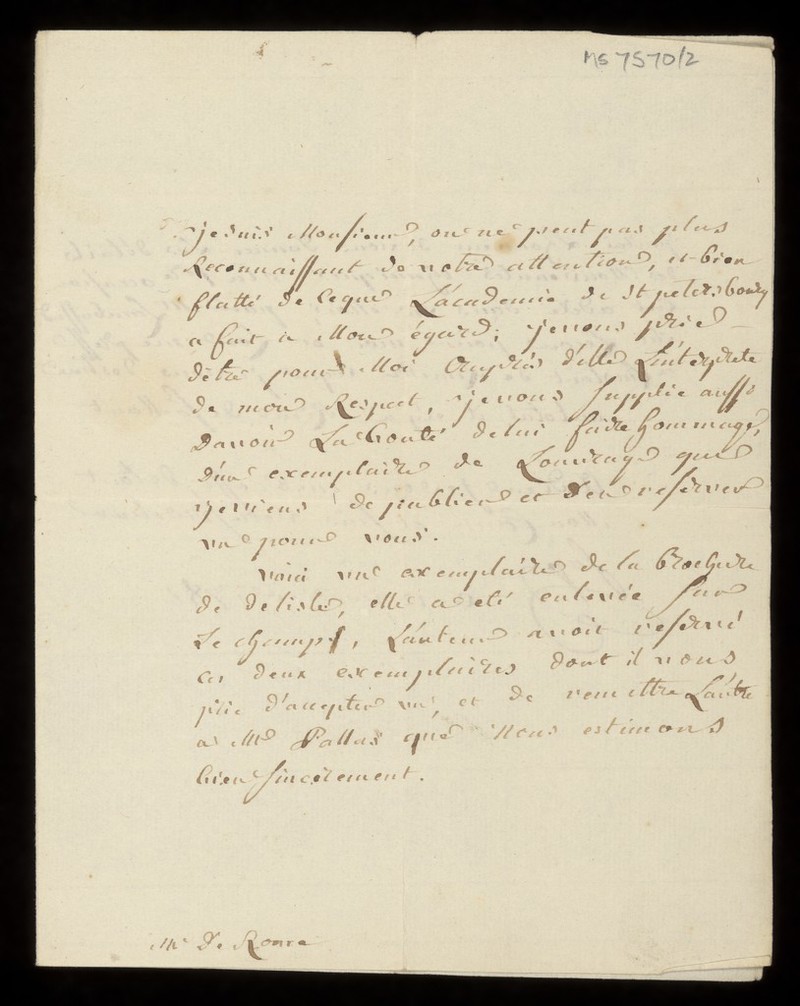 MS 7570/2
je suis Monsieur, on ne peut pas plus
Reconnaissant de votre attention, et bien
flatté de ce que L'académie de St petersbourg
a fait a Mon égard; je vous prie
d'être pour Moi Auprés d'elle L'interprete
de mon Respect, je vous supplie aussi
D'avoir La bonté de lui faire hommage,
D'un exemplaire de Louvrage que
je viens de publier et D'en reserver
un pour vous.
voici un exemplaire de la Brochure
de delisle, elle a eté enlevée sur
Le champ, L'auteur avoit reservé
ces deux exemplaires dont il vous
prie d'accepter un, et de remettre L'autre
a Mr Pallas que Nous estimons
bien sincerement.
Mr De